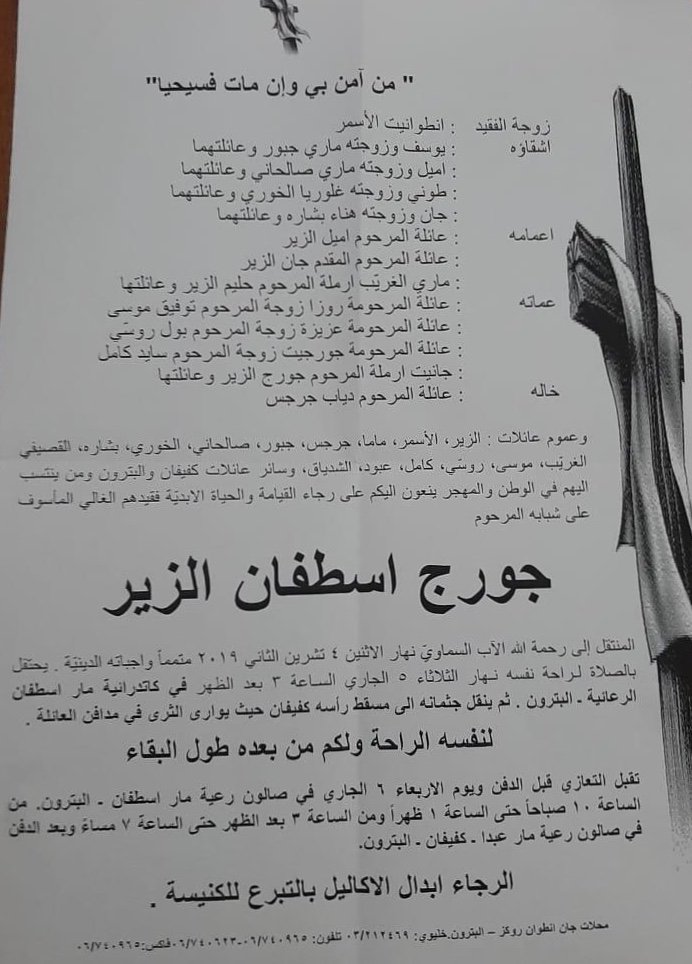 " من آمن بي وإن مات فسيحيا"
زوجة الفقيد : انطوانيت الأسمر
اشقاؤه : يوسف وزوجته ماري جبور وعائلتهما
: اميل وزوجته ماري صالحاني وعائلتهما
: طوني وزوجته غلوريا الخوري وعائلتهما
: جان وزوجته هناء بشاره وعائلتهما
اعمامه : عائلة المرحوم اميل الزير
: عائلة المرحوم المقدم جان الزير
: ماري الغريّب ارملة المرحوم حليم الزير وعائلتها
عماته : عائلة المرحومة روزا زوجة المرحوم توفيق موسى
: عائلة المرحومة عزيزة زوجة المرحوم بول روسّي
: عائلة المرحومة جورجيت زوجة المرحوم سايد كامل
: جانيت ارملة المرحوم جورج الزير وعائلتها
خاله : عائلة المرحوم دياب جرجس
وعموم عائلات : الزير، الأسمر، ماما، جرجس، جبور، صالحاني، الخوري، بشاره، القصيفي
الغريّب، موسى، روسّي، كامل، عبود، الشدياق، وسائر عائلات كفيفان والبترون ومن ينتسب
اليهم في الوطن والمهجر ينعون اليكم على رجاء القيامة والحياة الابديّة فقيدهم الغالي المأسوف
على شبابه المرحوم
جورج اسطفان الزير
المنتقل إلى رحمة الله الآب السماويّ نهار الاثنين ٤ تشرين الثاني ٢٠١٩ متمماً واجباته الدينيّة . يحتفل
بالصلاة لراحة نفسه نهار الثلاثاء ٥ الجاري الساعة ٣ بعد الظهر في كاتدرائية مار اسطفان
الرعائية ـ البترون . ثم ينقل جثمانه الى مسقط رأسه كفيفان حيث يوارى الثرى في مدافن العائلة .
لنفسه الراحة ولكم من بعده طول البقاء
تقبل التعازي قبل الدفن ويوم الاربعاء ٦ الجاري في صالون رعية مار اسطفان ـ البترون. من
الساعة ١٠ صباحاً حتى الساعة ١ ظهراً ومن الساعة ٣ بعد الظهر حتى الساعة ٧ مساءً وبعد الدفن
في صالون رعية مار عبدا ـ كفيفان ـ البترون.
الرجاء ابدال الاكاليل بالتبرع للكنيسة .
محلات جان انطوان روكز – البترون.خليوي: ٠٣/٢١٢٤٦٩ تلفون: ٠٦/٧٤٠٩٦٥-٠٦/٧٤٠٦٢٣ فاكس:٠٦/٧٤٠٩٦٥